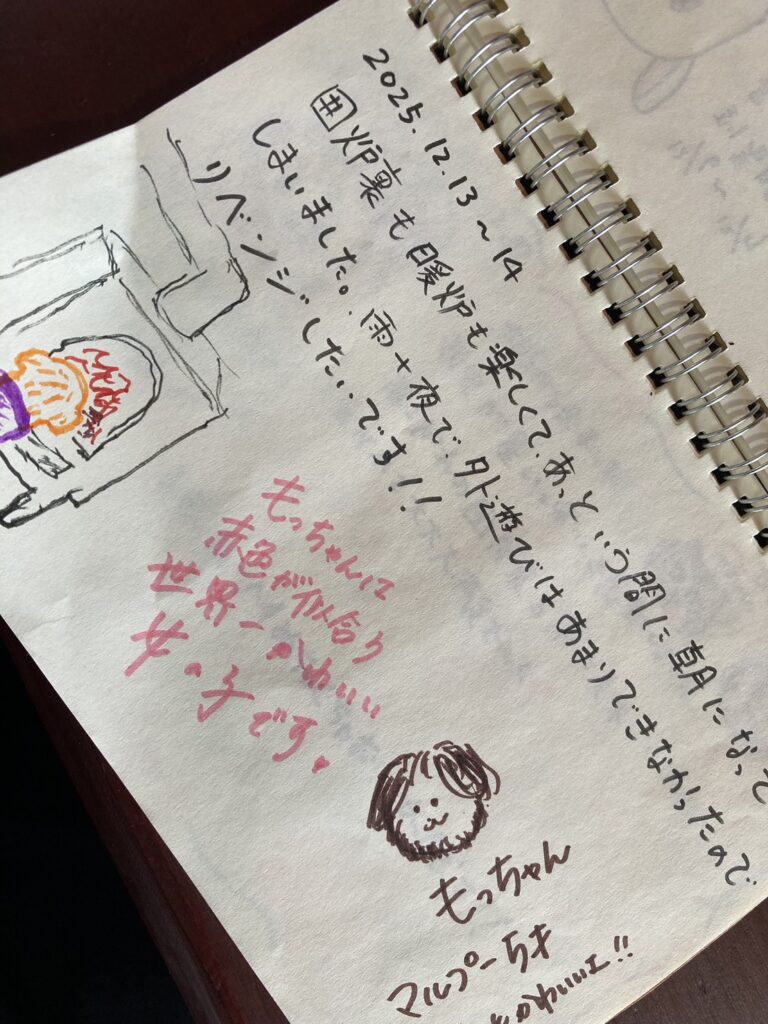 2025.12.13〜14
囲炉裏も暖炉も楽しくて、あっという間に朝になって
しまいました。雨+夜で、外遊びはあまりできなかったので
リベンジしたいです!!
もっちゃんは
赤色が似合う
世界一かわいい
女の子です。
もっちゃん
マルプーちゃん
かわいい!!